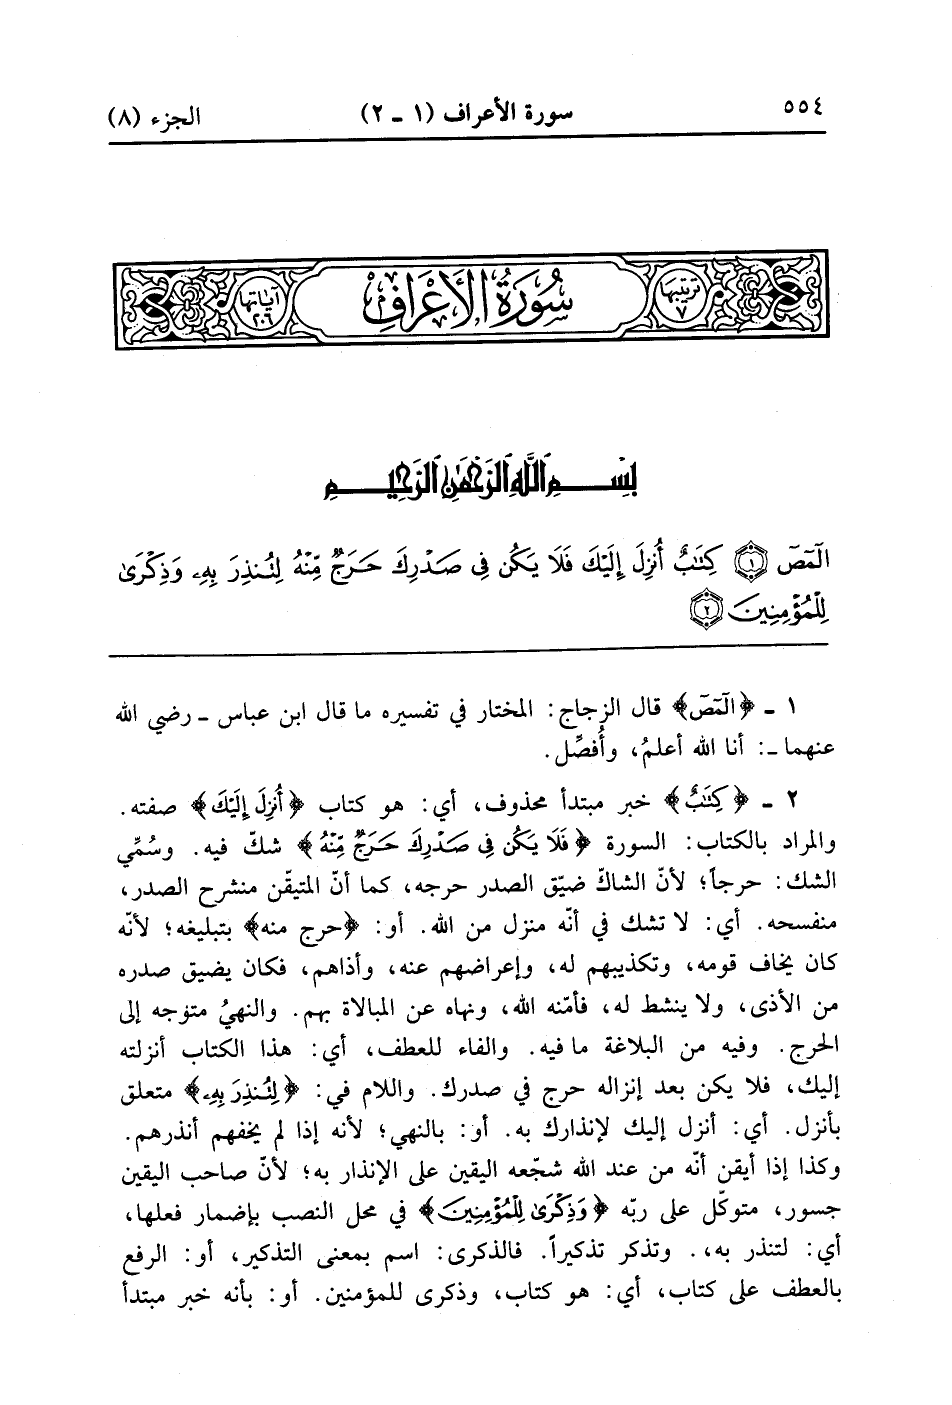 ٥٥٤ سورة الأعراف (١ ـ ٢) الجزء (٨)
ترتيبها ٧ سُورَةُ الأَعْرَافِ آياتها ٢٠٦
بِسْمِ ٱللَّهِ ٱلرَّحْمَٰنِ ٱلرَّحِيمِ
الٓمٓصٓ ۝١ كِتَٰبٌ أُنزِلَ إِلَيْكَ فَلَا يَكُن فِى صَدْرِكَ حَرَجٌ مِّنْهُ لِتُنذِرَ بِهِۦ وَذِكْرَىٰ
لِلْمُؤْمِنِينَ ۝٢
١ ـ ﴿الٓمٓصٓ﴾ قال الزجاج: المختار في تفسيره ما قال ابن عباس ـ رضي الله
عنهما ـ: أنا الله أعلمُ، وأُفصِّل.
٢ ـ ﴿كِتَٰبٌ﴾ خبر مبتدأ محذوف، أي: هو كتاب ﴿أُنزِلَ إِلَيْكَ﴾ صفته.
والمراد بالكتاب: السورة ﴿فَلَا يَكُن فِى صَدْرِكَ حَرَجٌ مِّنْهُ﴾ شكّ فيه. وسُمِّي
الشك: حرجاً؛ لأنّ الشاكّ ضيّق الصدر حرجه، كما أنّ المتيقّن منشرح الصدر،
منفسحه. أي: لا تشك في أنّه منزل من الله. أو: ﴿حرج منه﴾ بتبليغه؛ لأنّه
كان يخاف قومه، وتكذيبهم له، وإعراضهم عنه، وأذاهم، فكان يضيق صدره
من الأذى، ولا ينشط له، فأمّنه الله، ونهاه عن المبالاة بهم. والنهيُ متوّجه إلى
الحرج. وفيه من البلاغة ما فيه. والفاء للعطف، أي: هذا الكتاب أنزلته
إليك، فلا يكن بعد إنزاله حرج في صدرك. واللام في: ﴿لِتُنذِرَ بِهِۦ﴾ متعلق
بأنزل. أي: أنزل إليك لإنذارك به. أو: بالنهي؛ لأنه إذا لم يخفهم أنذرهم.
وكذا إذا أيقن أنّه من عند الله شجّعه اليقين على الإنذار به؛ لأنّ صاحب اليقين
جسور، متوكّل على ربّه ﴿وَذِكْرَىٰ لِلْمُؤْمِنِينَ﴾ في محل النصب بإضمار فعلها،
أي: لتنذر به،. وتذكر تذكيراً. فالذكرى: اسم بمعنى التذكير، أو: الرفع
بالعطف على كتاب، أي: هو كتاب، وذكرى للمؤمنين. أو: بأنه خبر مبتدأ